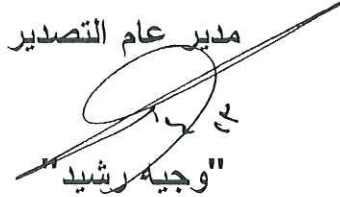 مدير عام التصدير
"وجيه رشيد"